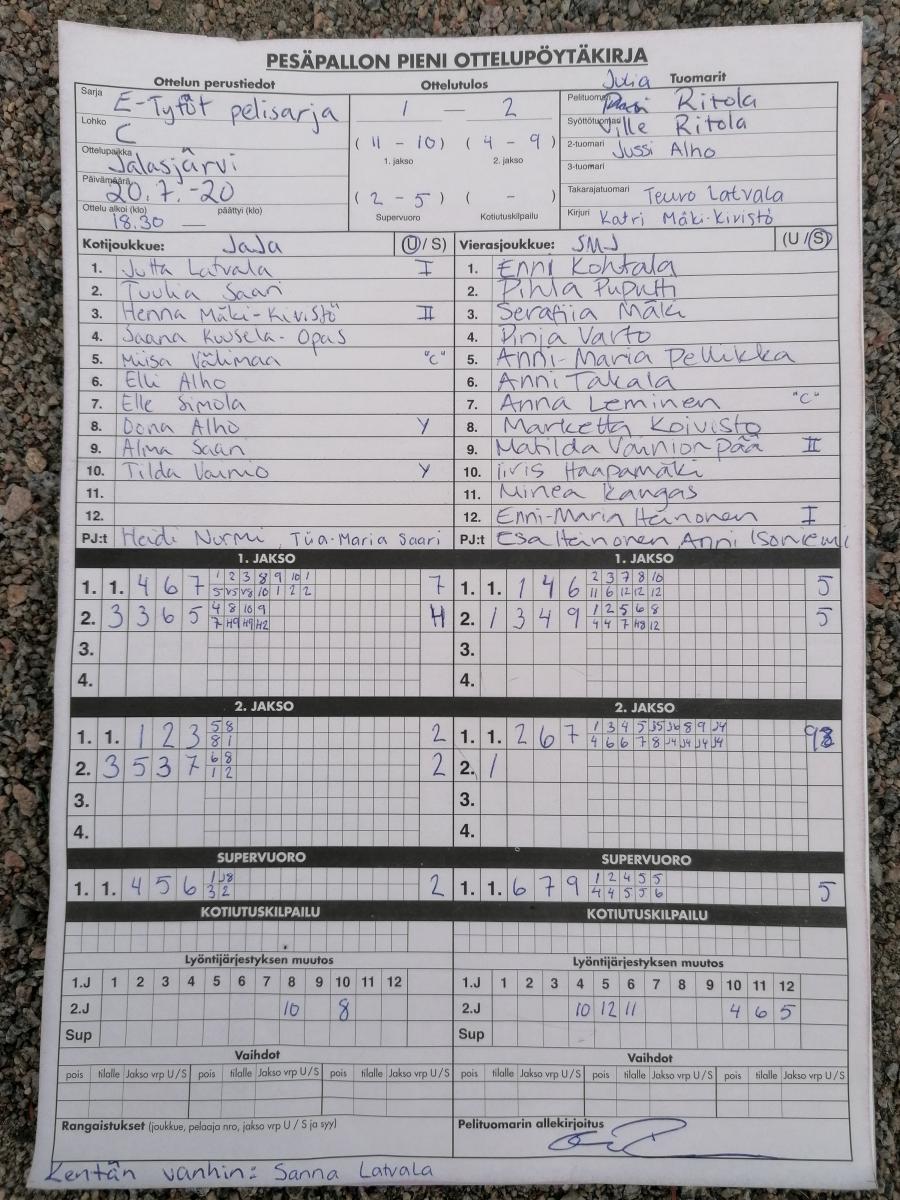 PESÄPALLON PIENI OTTELUPÖYTÄKIRJA
Ottelun perustiedot
Sarja E-Tytöt pelisarja
Lohko C
Ottelupaikka Jalasjärvi
Päivämäärä 20.7.-20
Ottelu alkoi (klo) 18.30 päättyi (klo) —
Ottelutulos
1 – 2
( 11 - 10 ) ( 4 - 9 )
1. jakso 2. jakso
( 2 - 5 ) ( - )
Supervuoro Kotiutuskilpailu
Tuomarit
Julia
Pelituomari Ritola
Syöttötuomari Ville Ritola
2-tuomari Jussi Alho
3-tuomari
Takarajatuomari Teuvo Latvala
Kirjuri Katri Mäki-Kivistö
Kotijoukkue: JaJa (U/S)
1. Jutta Latvala I
2. Tuulia Saari
3. Henna Mäki-Kivistö II
4. Saana Kuusela-Opas
5. Miisa Välimaa "C"
6. Elli Alho
7. Elle Simola
8. Oona Alho Y
9. Alma Saari
10. Tilda Vainio Y
11.
12.
PJ:t Heidi Nurmi, Tiia-Maria Saari
Vierasjoukkue: SMJ (U/S)
1. Enni Kohtala
2. Pihla Puputti
3. Serafiia Mäki
4. Pinja Varto
5. Anni-Maria Pellikka
6. Anni Takala
7. Anna Leminen "C"
8. Marketta Koivisto
9. Matilda Vainionpää II
10. Iiris Haapamäki
11. Minea Kangas
12. Enni-Maria Heinonen I
PJ:t Esa Heinonen, Anni
1. JAKSO
1. 1. 4 6 7 1 2 3 8 9 10 1 7
2. 3 3 6 5 4 8 10 9 4
7 H9 H9 H2
3.
4.
1. JAKSO
1. 1. 1 4 6 2 3 7 8 10 5
11 6 12 12 12
2. 1 3 4 9 1 2 5 6 8 5
4 4 7 H8 12
3.
4.
2. JAKSO
1. 1. 1 2 3 5 8 2
8 1
2. 3 5 3 7 6 8 2
1 2
3.
4.
2. JAKSO
1. 1. 2 6 7 1 3 4 5 J5 J6 8 9 J4 9
4 6 6 7 8 J4 J4 J4 J4
2. 1
3.
4.
SUPERVUORO
1. 1. 4 5 6 1 J8 2
3 2
SUPERVUORO
1. 1. 6 7 9 1 2 4 5 5 5
4 4 5 5 6
KOTIUTUSKILPAILU
KOTIUTUSKILPAILU
Lyöntijärjestyksen muutos
1.J 1 2 3 4 5 6 7 8 9 10 11 12
2.J 10 8
Sup
Lyöntijärjestyksen muutos
1.J 1 2 3 4 5 6 7 8 9 10 11 12
2.J 10 12 11 4 6 5
Sup
Vaihdot
pois tilalle Jakso vrp U/S pois tilalle Jakso vrp U/S pois tilalle Jakso vrp U/S
Vaihdot
pois tilalle Jakso vrp U/S pois tilalle Jakso vrp U/S pois tilalle Jakso vrp U/S
Rangaistukset (joukkue, pelaaja nro, jakso vrp U / S ja syy)
Pelituomarin allekirjoitus
Kentän vanhin: Sanna Latvala